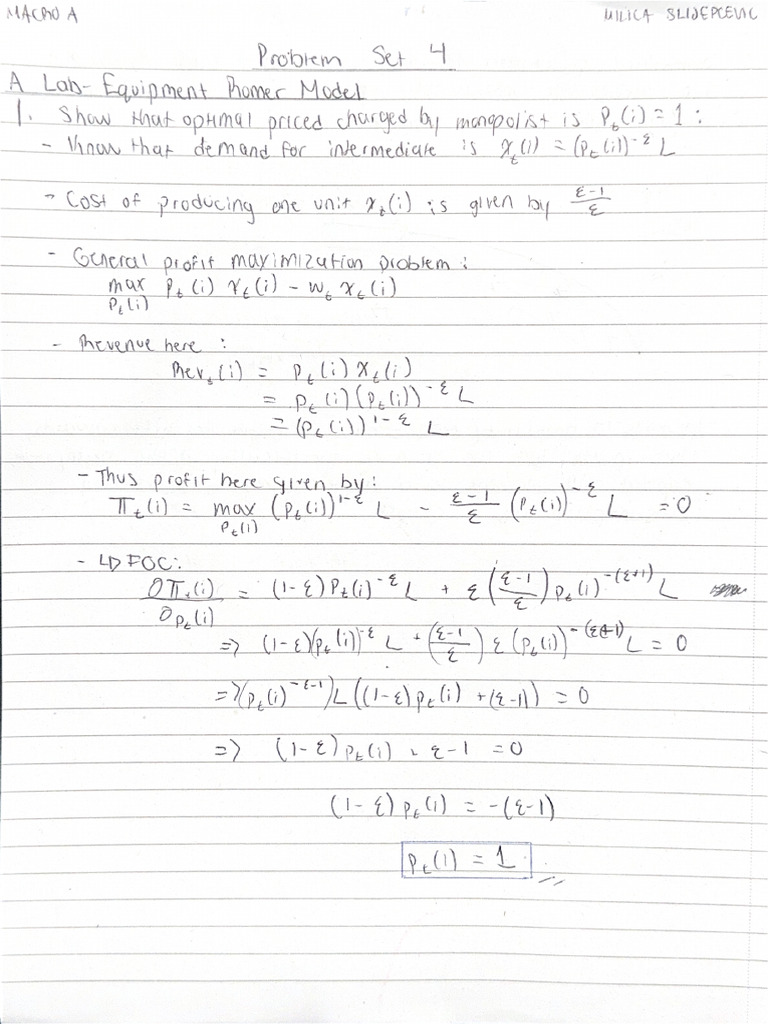 MACRO A
MILICA SLIJEPCEVIC
Problem Set 4
A Lab-Equipment Romer Model
1. Show that optimal priced charged by monopolist is P_t(i) = 1 :
- Know that demand for intermediate is x_t(i) = (P_t(i))^{-ε} L
- Cost of producing one unit x_t(i) is given by \frac{ε-1}{ε}
- General profit maximization problem :
max_{P_t(i)} P_t(i) x_t(i) - w_t x_t(i)
- Revenue here :
Rev_t(i) = P_t(i) x_t(i)
= P_t(i) (P_t(i))^{-ε} L
= (P_t(i))^{1-ε} L
- Thus profit here given by :
Π_t(i) = max_{P_t(i)} (P_t(i))^{1-ε} L - \frac{ε-1}{ε} (P_t(i))^{-ε} L = 0
- FOC :
\frac{∂Π_t(i)}{∂P_t(i)} = (1-ε) P_t(i)^{-ε} L + ε (\frac{ε-1}{ε}) P_t(i)^{-(ε+1)} L
=> (1-ε)(P_t(i))^{-ε} L + (\frac{ε-1}{ε}) ε (P_t(i))^{-(ε+1)} L = 0
=> (P_t(i)^{-ε-1}) L ((1-ε) P_t(i) + (ε-1)) = 0
=> (1-ε) P_t(i) + ε-1 = 0
(1-ε) P_t(i) = -(ε-1)
P_t(i) = 1